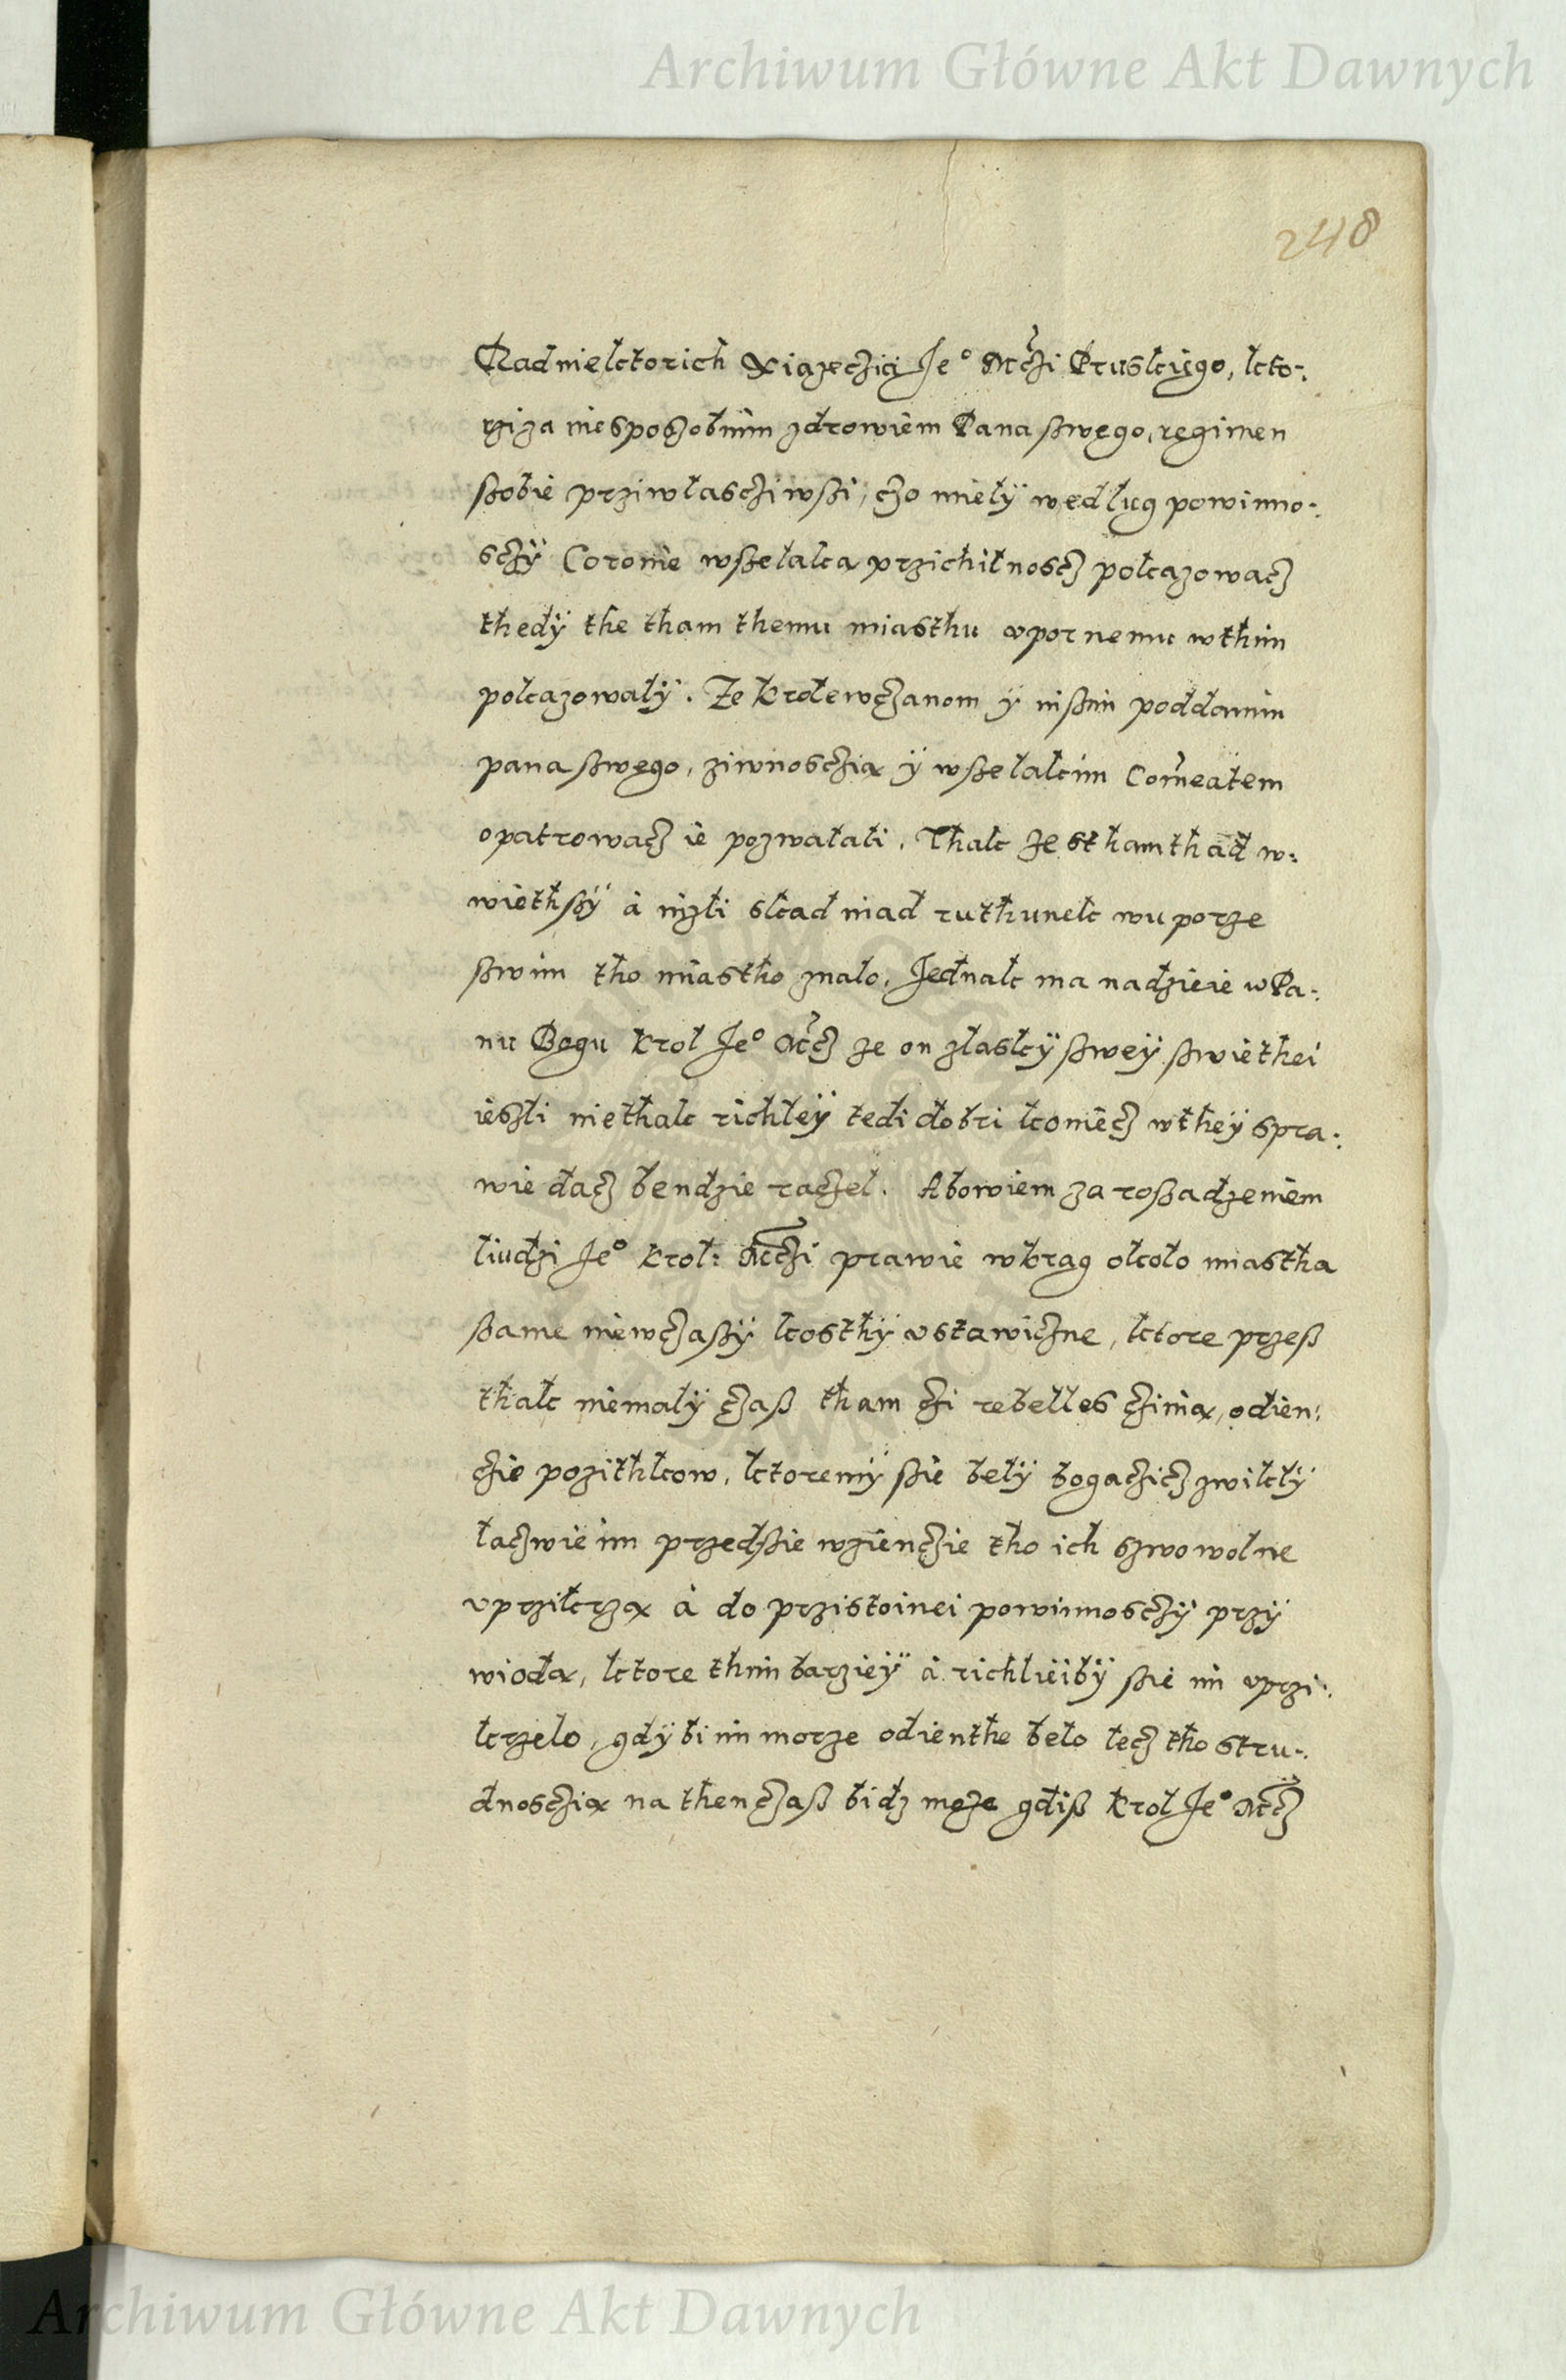 Archiwum Główne Akt Dawnych
248
Rad niektorich Xiązeczią Je° Mczi Pruskięgo, kto-
rzi za niesposzobnim zdrowiem Pana swęgo, ręgimen
ssobie prziwłasczïwssi, czo miełÿ według powinno-
sczÿ Coronie wsselaka przichiłnoscz pokazowacz
thedÿ the tham themu miasthu vpornemu wthim
pokazowałÿ. Ze Krolewczanom ÿ inssim poddanim
pana sswęgo, ziwnosczią ÿ wsselakim Com̃eatem
opatrowacz ie pozwalali. Thak ze sthamthąd w-
wiethssÿ à nizli skad inad ruthunek wu porze
sswim tho miastho znało. Jednak ma nadzieie w Pa-
nu Bogu Krol Je° Mcz ze on złaskÿ sswey sswiethei
ieszli niethak richleÿ tedi dobri koniecz wtheÿ spra-
wie dacz bendzie raczel. Abowiem za rossadzeniem
liudzi Je° Krol: Mczi prawie wkrąg około miastha
ssame niewczassÿ kosthÿ vstawiczne, ktore przess
thak niemałÿ czass tham czi rebelles czinią, odien-
czie pozithkow, ktoremÿ ssie belÿ bogaczicz zwiklÿ
łaczwie im przedssie wzienczie tho ich szwowolne
vprzikrzą à do przistoinei powinnosczÿ przÿ
wiodą, ktore thim barzieÿ à richlieibÿ ssie im vprzi-
krzelo, gdÿbi im morze odienthe beło lecz tho stru-
dnosczią na thenczass bidz może gdiss Krol Je° Mcz
Archiwum Główne Akt Dawnych